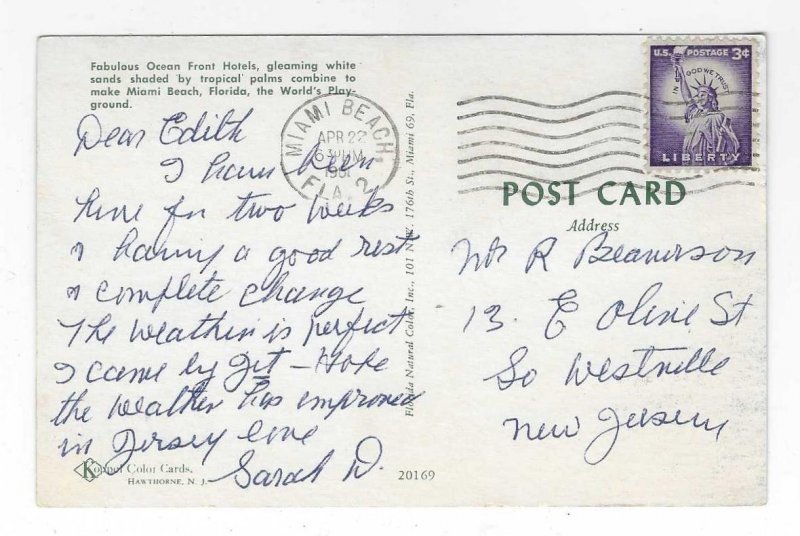 Fabulous Ocean Front Hotels, gleaming white
sands shaded by tropical palms combine to
make Miami Beach, Florida, the World's Play-
ground.
Dear Edith
I have been
here for two weeks
& having a good rest
& complete change
The weather is perfect
I came by jet - Hope
the weather has improved
in Jersey Love
Sarah D.
Koppel Color Cards,
HAWTHORNE, N. J.
20169
Florida Natural Color, Inc., 101 N.W. 176th St., Miami 69, Fla.
MIAMI BEACH,
APR 22
630PM
1961
FLA. 2
U.S. POSTAGE 3¢
IN GOD WE TRUST
LIBERTY
POST CARD
Address
R
13. E Olive St
So Westville
New Jersey